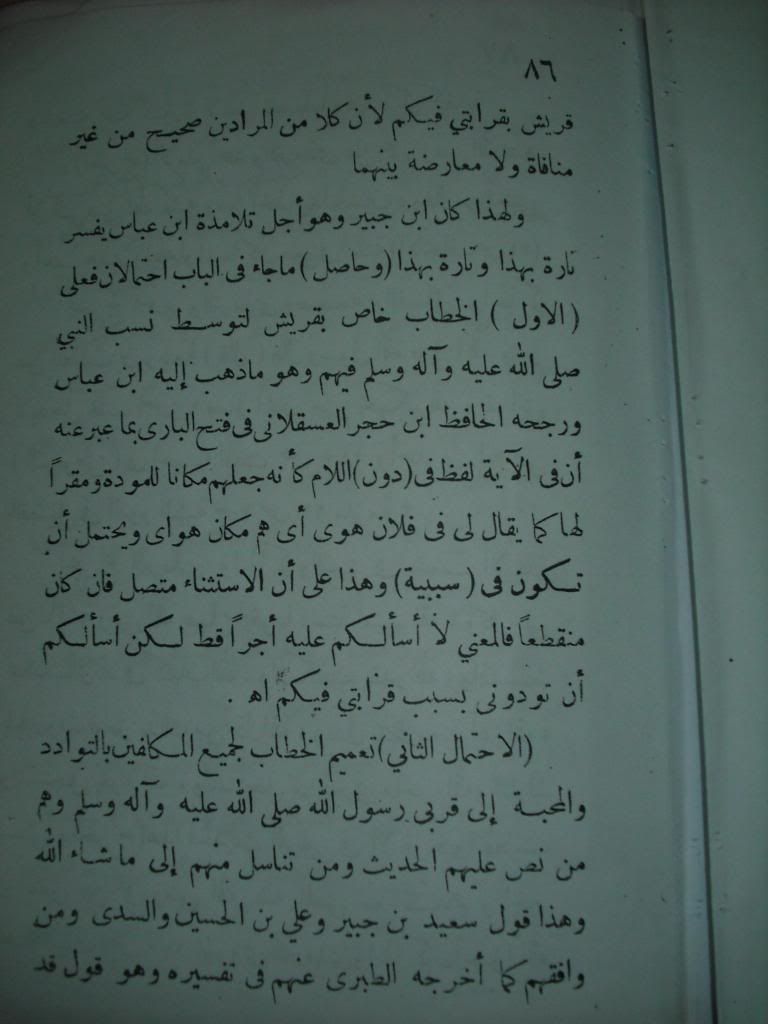 ٨٦
قريش بقرابتي فيكم لأن كلا من المرادين صحيح من غير
منافاة ولا معارضة بينهما
ولهذا كان ابن جبير وهو أجل تلامذة ابن عباس يفسر
تارة بهذا وتارة بهذا (وحاصل) ماجاء فى الباب احتمالان فعلى
(الاول) الخطاب خاص بقريش لتوسط نسب النبي
صلى الله عليه وآله وسلم فيهم وهو ماذهب إليه ابن عباس
ورجحه الحافظ ابن حجر العسقلانى فى فتح البارى بما عبر عنه
أن فى الآية لفظ فى (دون) اللام كأنه جعلهم مكانا للمودة ومقراً
لها كما يقال لى فى فلان هوى أى هم مكان هواى ويحتمل أن
تكون فى (سببية) وهذا على أن الاستثناء متصل فان كان
منقطعاً فالمعني لا أسألكم عليه أجراً قط لكن أسألكم
أن تودونى بسبب قرابتي فيكم اه .
(الاحتمال الثاني) تعميم الخطاب لجميع المكلفين بالتوادد
والمحبة إلى قربى رسول الله صلى الله عليه وآله وسلم وهم
من نص عليهم الحديث ومن تناسل منهم إلى ماشاء الله
وهذا قول سعيد بن جبير وعلي بن الحسين والسدى ومن
وافقهم كما أخرجه الطبرى عنهم فى تفسيره وهو قول قد